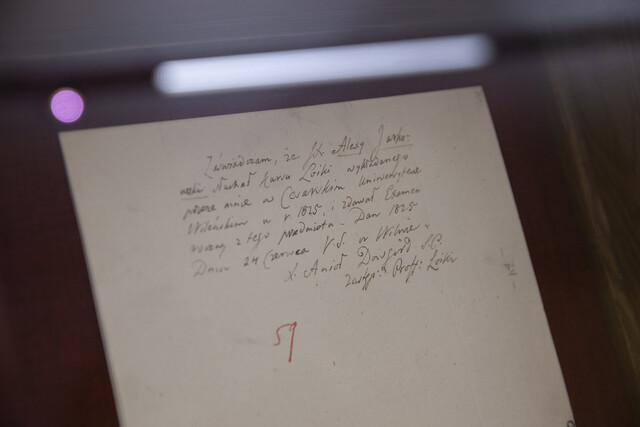 Zaświadczam, że JX. Alexy Jarko-
wski słuchał kursu Loiki wykładanego
przeze mnie w Cesarskim Uniwersytecie
Wileńskim w r. 1825, i zdawał Examen
roczny z tego przedmiotu. Dan 1825
Dnia 24 Czerwca V.S. w Wilnie.
X. Anioł Dowgird S.P.
Zastęp: Proff: Loiki
59